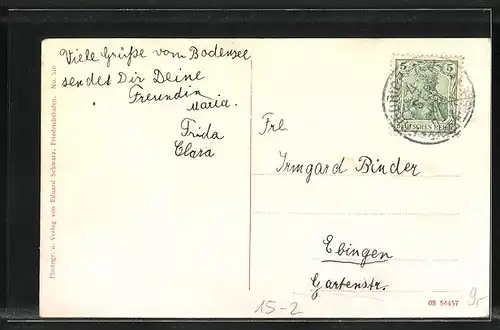 Viele Grüße vom Bodensee
sendet Dir Deine
Freundin
Maria.
Frida
Clara
Frl.
Irmgard Binder
Ebingen
Gartenstr.
5 5
DEUTSCHES REICH
Photogr. u. Verlag von Eduard Schwarz, Friedrichshafen. No. 520
08 54457
15-2
9,-